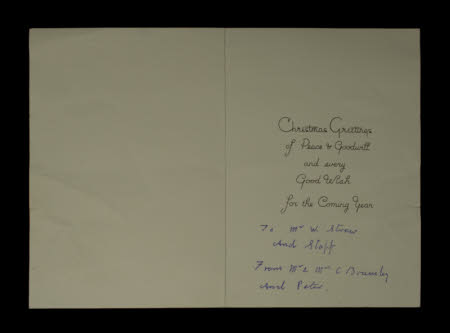 Christmas Greetings
of Peace & Goodwill
and every
Good Wish
for the Coming Year
To Mr W. Straw
And Staff
From Mr & Mrs C Bramley
And Peter.